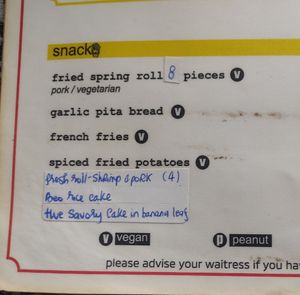 snacks
fried spring roll 8 pieces V
pork / vegetarian
garlic pita bread V
french fries V
spiced fried potatoes V
fresh roll-shrimp & pork (4)
Beo rice cake
Hue Savory Cake in banana leaf
V vegan
p peanut
please advise your waitress if you ha